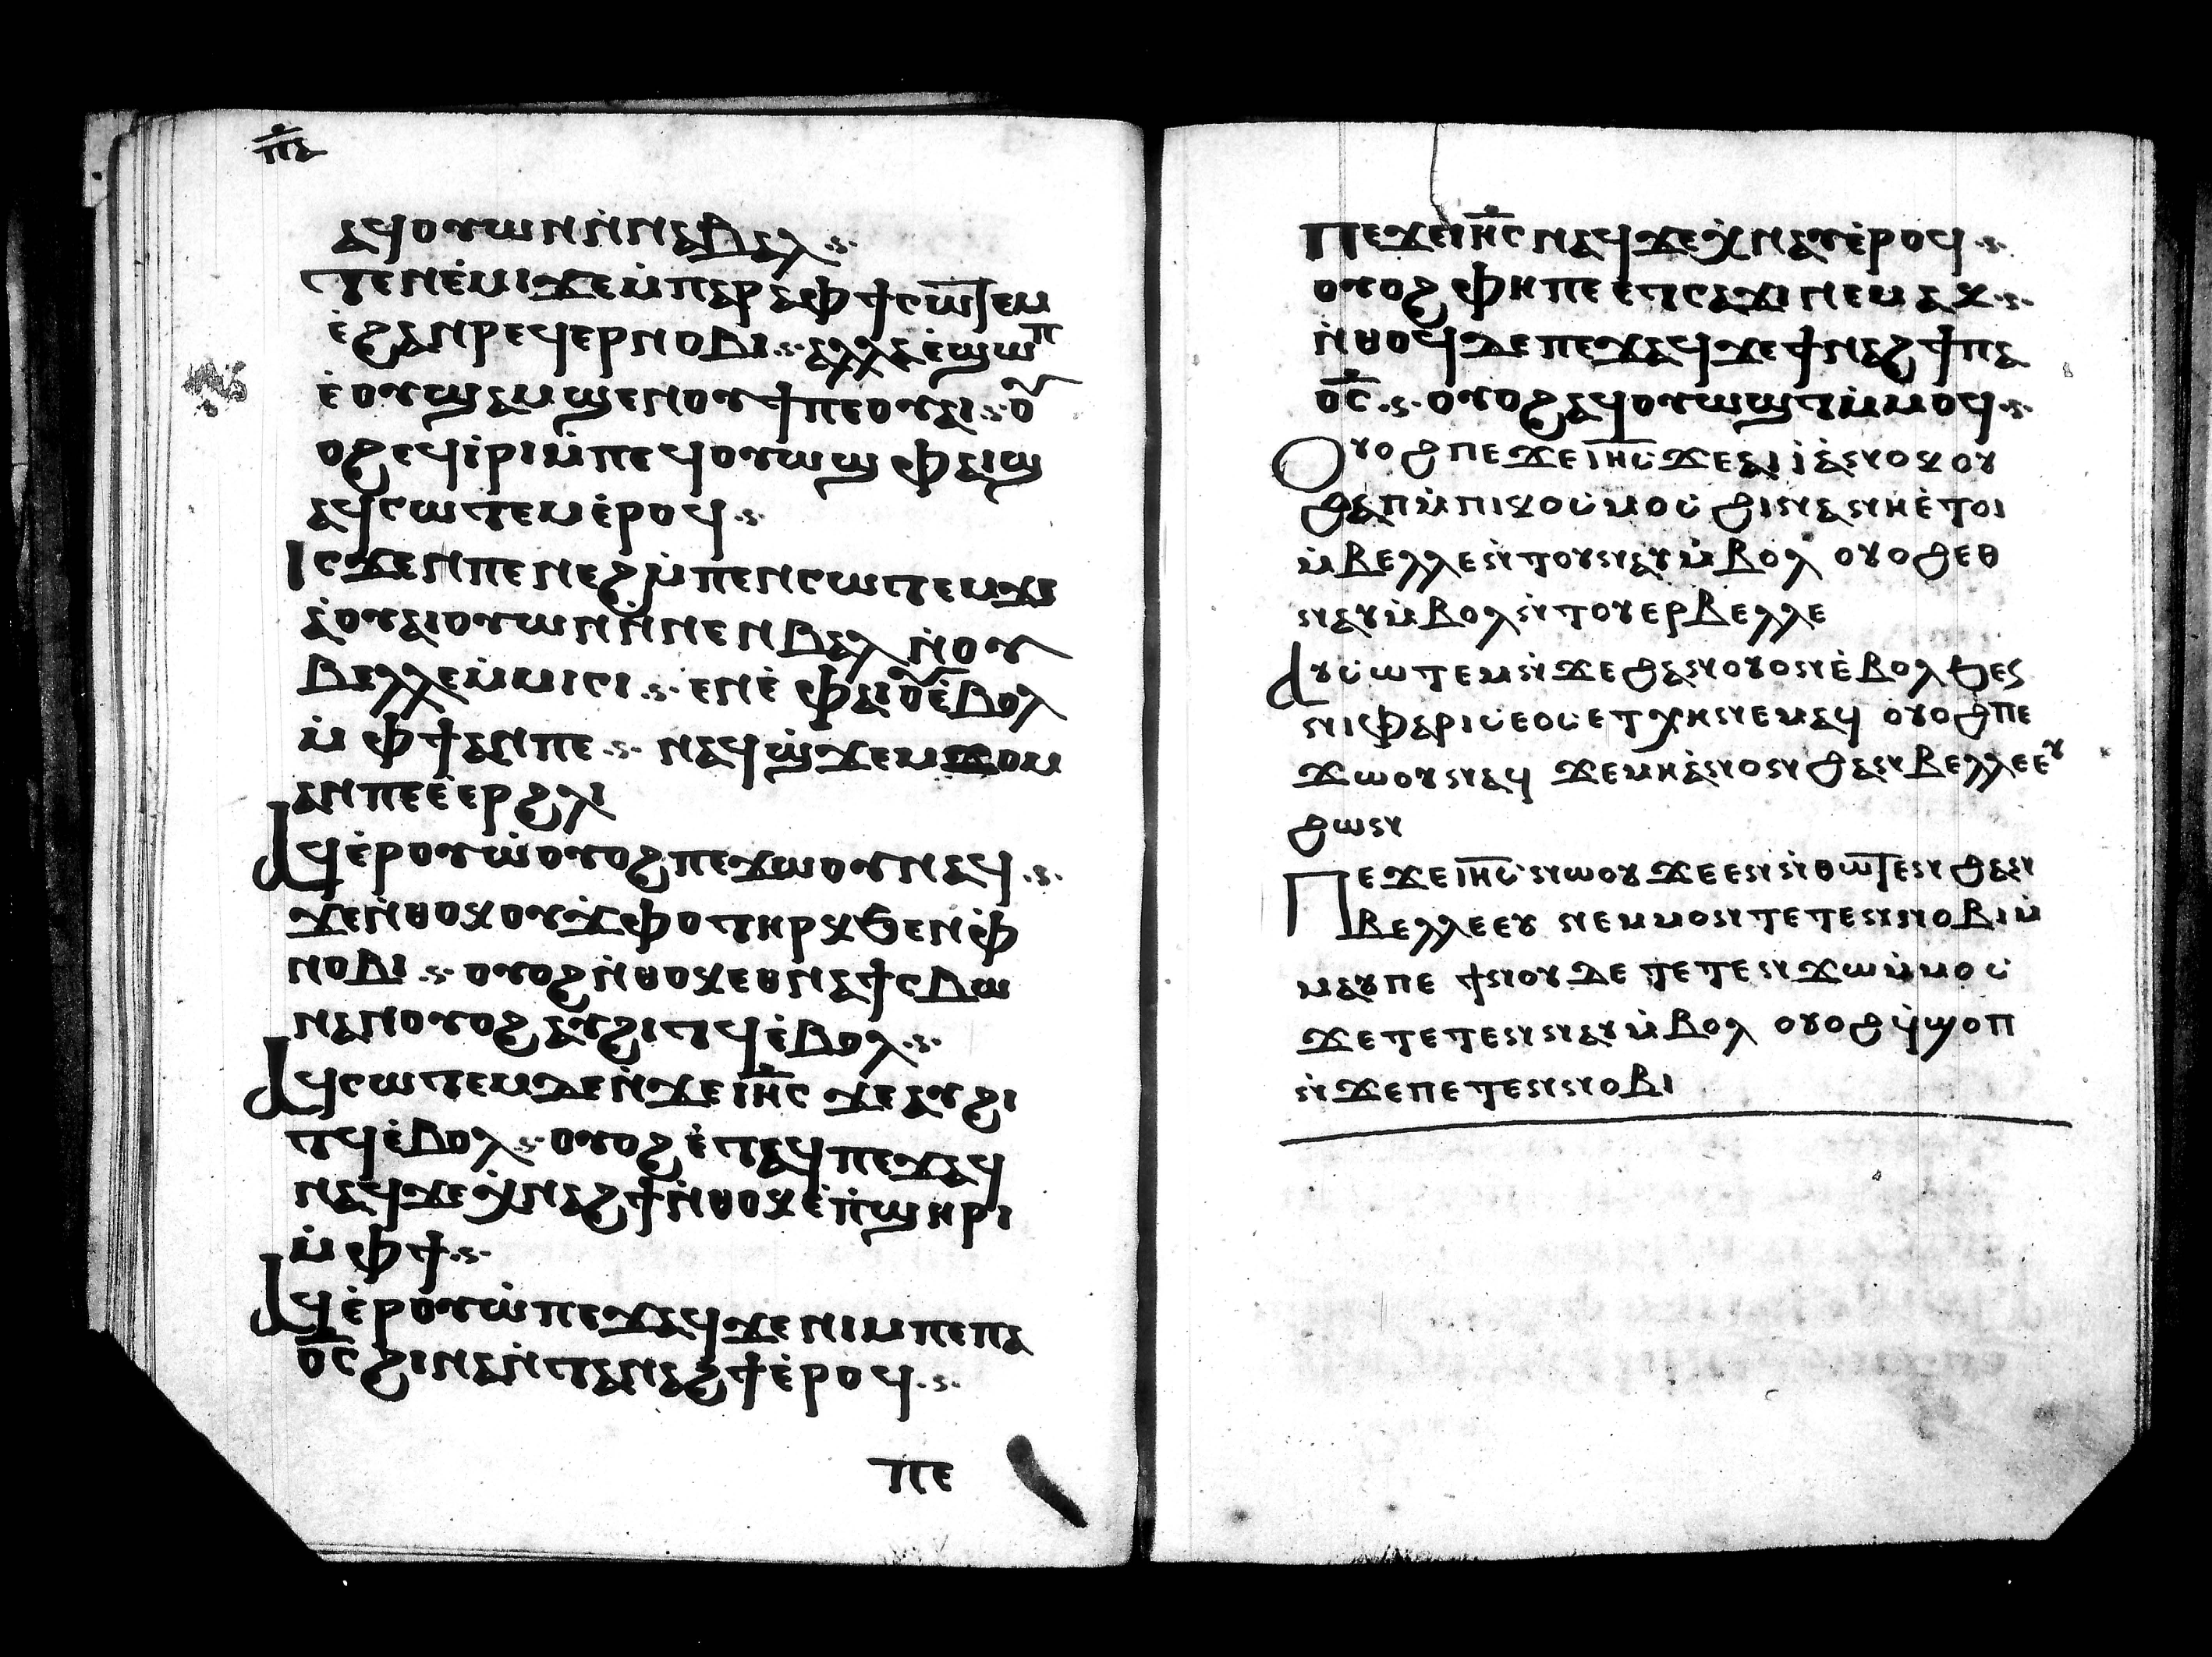 ⲡ̅ⲇ̅
ⲁϥⲟⲩⲱⲛ ⲛ̀ⲛⲁⲃⲁⲗ
ⲧⲉⲛⲉ̀ⲙⲓ ϫⲉ ⲙ̀ⲡⲁⲣⲁ ⲫϯ ⲥⲱⲧⲉⲙ
ⲉ̀ϩⲁⲛⲣⲉϥⲉⲣⲛⲟⲃⲓ ⲁⲗⲗⲁ ⲉ̀ϣⲱⲡ
ⲉ̀ⲟⲩϣⲁⲙϣⲉⲛⲟⲩϯ ⲡⲉ ⲟⲩⲁⲓ ⲟⲩ
ⲟϩ ⲉϥⲓ̀ⲣⲓ ⲙ̀ⲡⲉϥⲟⲩⲱϣ ⲫⲁⲓ ϣ
ⲁϥⲥⲱⲧⲉⲙ ⲉ̀ⲣⲟϥ
Ⲓⲥϫⲉⲛ ⲡⲉⲛⲉϩ ⲙ̀ⲡⲉⲛⲥⲱⲧⲉⲙ ϫⲉ
ⲁ̀ⲟⲩⲁⲓ ⲟⲩⲱⲛ ⲛ̀ⲛⲉⲛⲃⲁⲗ ⲛ̀ⲟⲩ
ⲃⲉⲗⲗⲉ ⲙ̀ⲙⲓⲥⲓ ⲉⲛⲉ̀ ⲫⲁⲓ ⲟⲩⲉ̀ⲃⲟⲗ
ⲙ̀ⲫϯ ⲁⲛ ⲡⲉ ⲛⲁϥϣ̀ϫⲉⲙϫⲟⲙ
ⲁⲛ ⲡⲉ ⲉ̀ⲉⲣϩⲗⲓ
Ⲁⲩⲉ̀ⲣⲟⲩⲱ̀ ⲟⲩⲟϩ ⲡⲉϫⲱⲟⲩ ⲛⲁϥ
ϫⲉ ⲛ̀ⲑⲟⲕ ⲟⲩϫ̀ⲫⲟ ⲧⲏⲣⲕ ϧⲉⲛ ⲫ̀
ⲛⲟⲃⲓ ⲟⲩⲟϩ ⲛ̀ⲑⲟⲕ ⲉⲑⲛⲁϯⲥⲃⲱ
ⲛⲁⲛ ⲟⲩⲟϩ ⲁⲩϩⲓⲧϥ ⲉ̀ⲃⲟⲗ
Ⲁϥⲥⲱⲧⲉⲙ ⲇⲉ ⲛ̀ϫⲉ ⲓⲏ̅ⲥ ϫⲉ ⲁⲩϩⲓ
ⲧϥ ⲉ̀ⲃⲟⲗ ⲟⲩⲟϩ ⲉ̀ⲧⲁϥ ⲡⲉϫⲁϥ
ⲛⲁϥ ϫⲉ ⲭ̀ⲛⲁϩϯ ⲛ̀ⲑⲟⲕ ⲉ̀ⲡ̀ϣⲏⲣⲓ
ⲙ̀ⲫϯ
Ⲁϥⲉ̀ⲣⲟⲩⲱ̀ ⲡⲉϫⲁϥ ϫⲉ ⲛⲓⲙ ⲡⲉ ⲡⲁ
ⲟ̅ⲥ̅ ϩⲓⲛⲁ ⲛ̀ⲧⲁⲛⲁϩϯ ⲉ̀ⲣⲟϥ
ⲡⲉ
Ⲡⲉϫⲉ ⲓⲏ̅ⲥ ⲛⲁϥ ϫⲉ ⲭ̀ⲛⲁⲩ ⲉ̀ⲣⲟϥ
ⲟⲩⲟϩ ⲫⲏ ⲡⲉ ⲉⲧⲥⲁϫⲓ ⲛⲉⲙⲁⲕ
ⲛ̀ⲑⲟϥ ⲇⲉ ⲡⲉϫⲁϥ ϫⲉ ϯⲛⲁϩϯ ⲡⲁ
ⲟ̅ⲥ̅ ⲟⲩⲟϩ ⲁϥⲟⲩⲱϣⲧ ⲙ̀ⲙⲟϥ
Ⲟⲩⲟϩ ⲡⲉϫⲉ ⲓⲏ̅ⲥ ϫⲉ ⲁⲓⲓ̀ ⲁ̀ⲛⲟⲕ ⲟⲩ
ϩⲁⲡ ⲙ̀ⲡⲓⲕⲟⲥⲙⲟⲥ ϩⲓⲛⲁ ⲛⲏ ⲉ̀ⲧⲟⲓ
ⲙ̀ⲃⲉⲗⲗⲉ ⲛ̀ⲧⲟⲩⲛⲁⲩ ⲙ̀ⲃⲟⲗ ⲟⲩⲟϩ ⲉⲑ
ⲛⲁⲩ ⲙ̀ⲃⲟⲗ ⲛ̀ⲧⲟⲩⲉⲣⲃⲉⲗⲗⲉ
Ⲁⲩⲥⲱⲧⲉⲙ ⲛ̀ϫⲉ ϩⲁⲛⲟⲩⲟⲛ ⲉ̀ⲃⲟⲗ ϧⲉⲛ
ⲛⲓⲫⲁⲣⲓⲥⲉⲟⲥ ⲉⲧⲭⲏ ⲛⲉⲙⲁϥ ⲟⲩⲟϩ ⲡⲉ
ϫⲱⲟⲩ ⲛⲁϥ ϫⲉ ⲙⲏ ⲁ̀ⲛⲟⲛ ϩⲁⲛⲃⲉⲗⲗⲉⲉⲩ
ϩⲱⲛ
Ⲡⲉϫⲉ ⲓⲏ̅ⲥ ⲛⲱⲟⲩ ϫⲉ ⲉⲛⲛ̀ⲑⲱⲧⲉⲛ ϩⲁⲛ
ⲃⲉⲗⲗⲉⲉⲩ ⲛⲉ ⲙⲙⲟⲛⲧⲉⲧⲉⲛⲛⲟⲃⲓ ⲙ̀
ⲙⲁⲩ ⲡⲉ ϯⲛⲟⲩ ⲇⲉ ⲧⲉⲧⲉⲛϫⲱ ⲙ̀ⲙⲟⲥ
ϫⲉ ⲧⲉⲧⲉⲛⲛⲁⲩ ⲙ̀ⲃⲟⲗ ⲟⲩⲟϩ ϥ̀ϣⲟⲡ
ⲛ̀ϫⲉ ⲡⲉⲧⲉⲛⲛⲟⲃⲓ